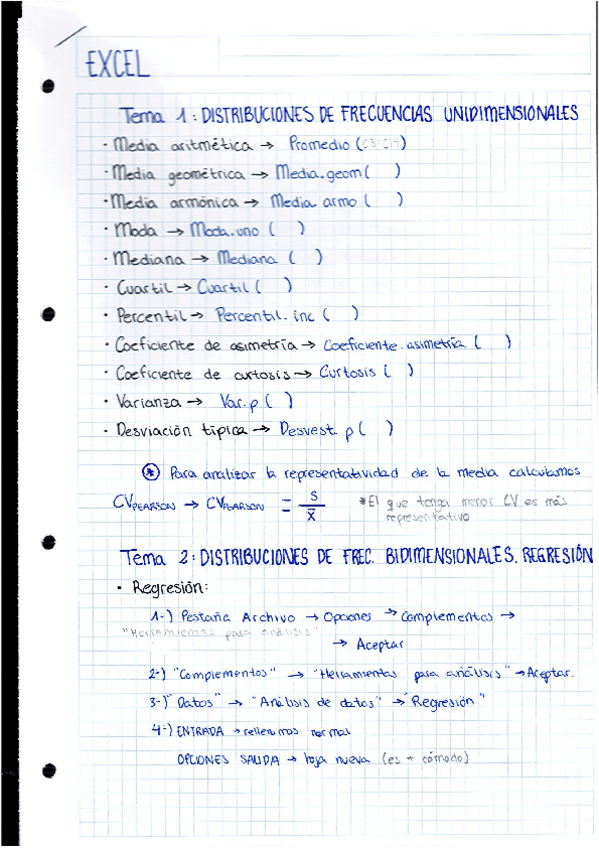 EXCEL
Tema 1: DISTRIBUCIONES DE FRECUENCIAS UNIDIMENSIONALES
· Media aritmética → Promedio (C3:C17)
· Media geométrica → Media.geom( )
· Media armónica → Media.armo ( )
· Moda → Moda.uno ( )
· Mediana → Mediana ( )
· Cuartil → Cuartil ( )
· Percentil → Percentil.inc ( )
· Coeficiente de asimetría → Coeficiente.asimetría ( )
· Coeficiente de curtosis → Curtosis ( )
· Varianza → Var.p ( )
· Desviación típica → Desvest.p ( )
* Para analizar la representatividad de la media calculamos
CV PEARSON → CV PEARSON = S / X̄ *El que tenga menor CV es más
representativo
Tema 2: DISTRIBUCIONES DE FREC. BIDIMENSIONALES. REGRESIÓN
· Regresión:
1-) Pestaña Archivo → Opciones → Complementos →
"Herramientas para análisis"
→ Aceptar
2-) "Complementos" → "Herramientas para análisis" → Aceptar.
3-) "Datos" → "Análisis de datos" → "Regresión"
4-) ENTRADA → rellenamos normal
OPCIONES SALIDA → hoja nueva (es + cómodo)